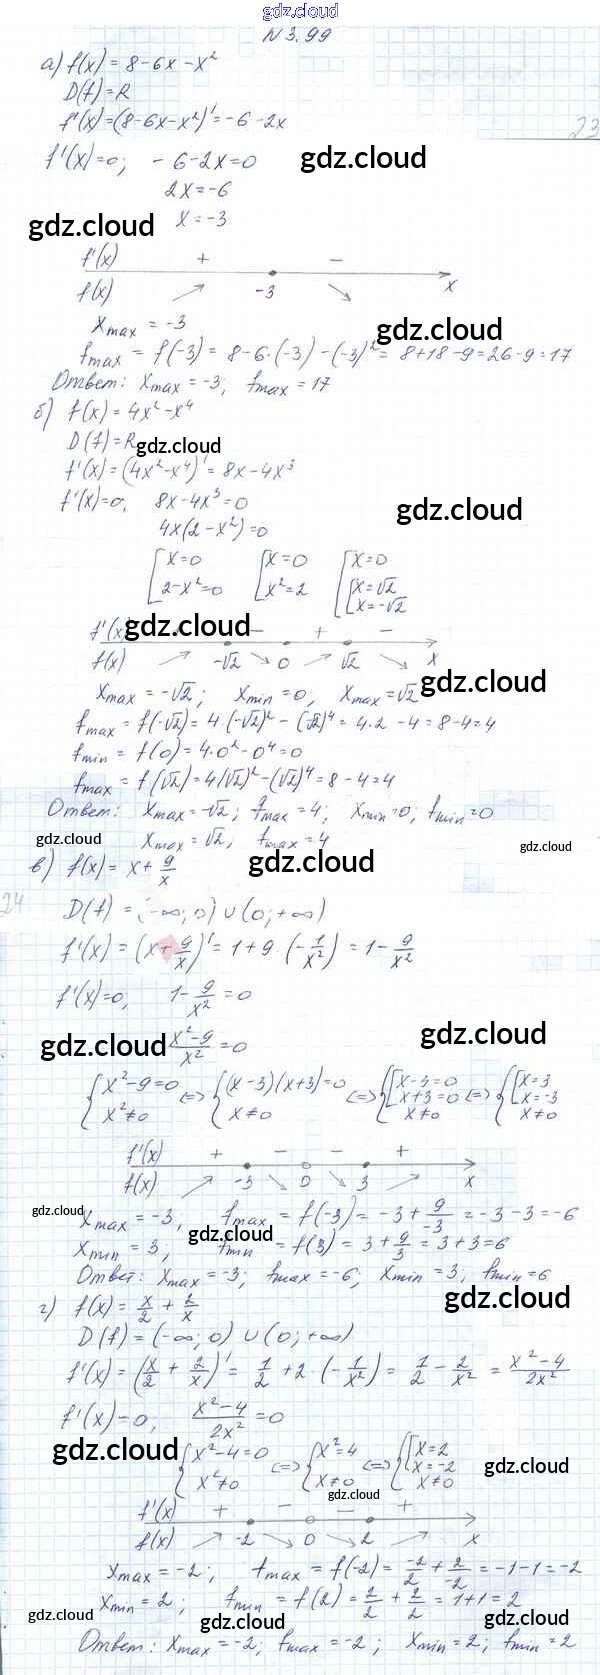 gdz.cloud
N 3.99
а) f(x) = 8-6x-x²
D(f)=R
f'(x)=(8-6x-x²)'=-6-2x
23
f'(x)=0; -6-2x=0 gdz.cloud
2x=-6
gdz.cloud x=-3
f'(x) + -
f(x) -3 x
xmax = -3 gdz.cloud
fmax = f(-3) = 8-6·(-3)-(-3)²= 8+18-9=26-9=17
Ответ: xmax=-3; fmax=17
б) f(x)=4x²-x⁴
D(f)=R gdz.cloud
f'(x)=(4x²-x⁴)'=8x-4x³
f'(x)=0, 8x-4x³=0 gdz.cloud
4x(2-x²)=0
[x=0 [x=0 [x=0
2-x²=0 x²=2 [x=√2
x=-√2
f'(x) gdz.cloud - + -
f(x) -√2 0 √2 x
xmax=-√2; xmin=0; xmax=√2 gdz.cloud
fmax=f(-√2)=4·(-√2)²-(√2)⁴=4·2-4=8-4=4
fmin=f(0)=4·0²-0⁴=0
fmax=f(√2)=4(√2)²-(√2)⁴=8-4=4
Ответ: xmax=-√2; fmax=4; xmin=0; fmin=0
gdz.cloud xmax=√2; fmax=4 gdz.cloud gdz.cloud
в) f(x)=x+9/x
24
D(f)=(-∞;0)∪(0;+∞)
f'(x)=(x+9/x)'=1+9·(-1/x²)=1-9/x²
f'(x)=0, 1-9/x²=0
gdz.cloud (x²-9)/x²=0 gdz.cloud
{x²-9=0 <=> {(x-3)(x+3)=0 <=> {[x-3=0 <=> {[x=3
x²≠0 x≠0 x+3=0 x=-3
x≠0 x≠0
f'(x) + - - +
f(x) -3 0 3 x
gdz.cloud xmax=-3, fmax=f(-3)=-3+9/-3=-3-3=-6
xmin=3, gdz.cloud fmin=f(3)=3+9/3=3+3=6
Ответ: xmax=-3; fmax=-6; xmin=3; fmin=6
gdz.cloud
г) f(x)=x/2+2/x
D(f)=(-∞;0)∪(0;+∞)
f'(x)=(x/2+2/x)'=1/2+2·(-1/x²)=1/2-2/x²=(x²-4)/2x²
f'(x)=0, (x²-4)/2x²=0
gdz.cloud {x²-4=0 <=> {x²=4 <=> {[x=2 gdz.cloud
x²≠0 x≠0 x=-2
x≠0
gdz.cloud
f'(x) + - - +
f(x) -2 0 2 x
xmax=-2; fmax=f(-2)=-2/2+2/-2=-1-1=-2
xmin=2; fmin=f(2)=2/2+2/2=1+1=2
gdz.cloud gdz.cloud gdz.cloud
Ответ: xmax=-2; fmax=-2; xmin=2; fmin=2
gdz.cloud